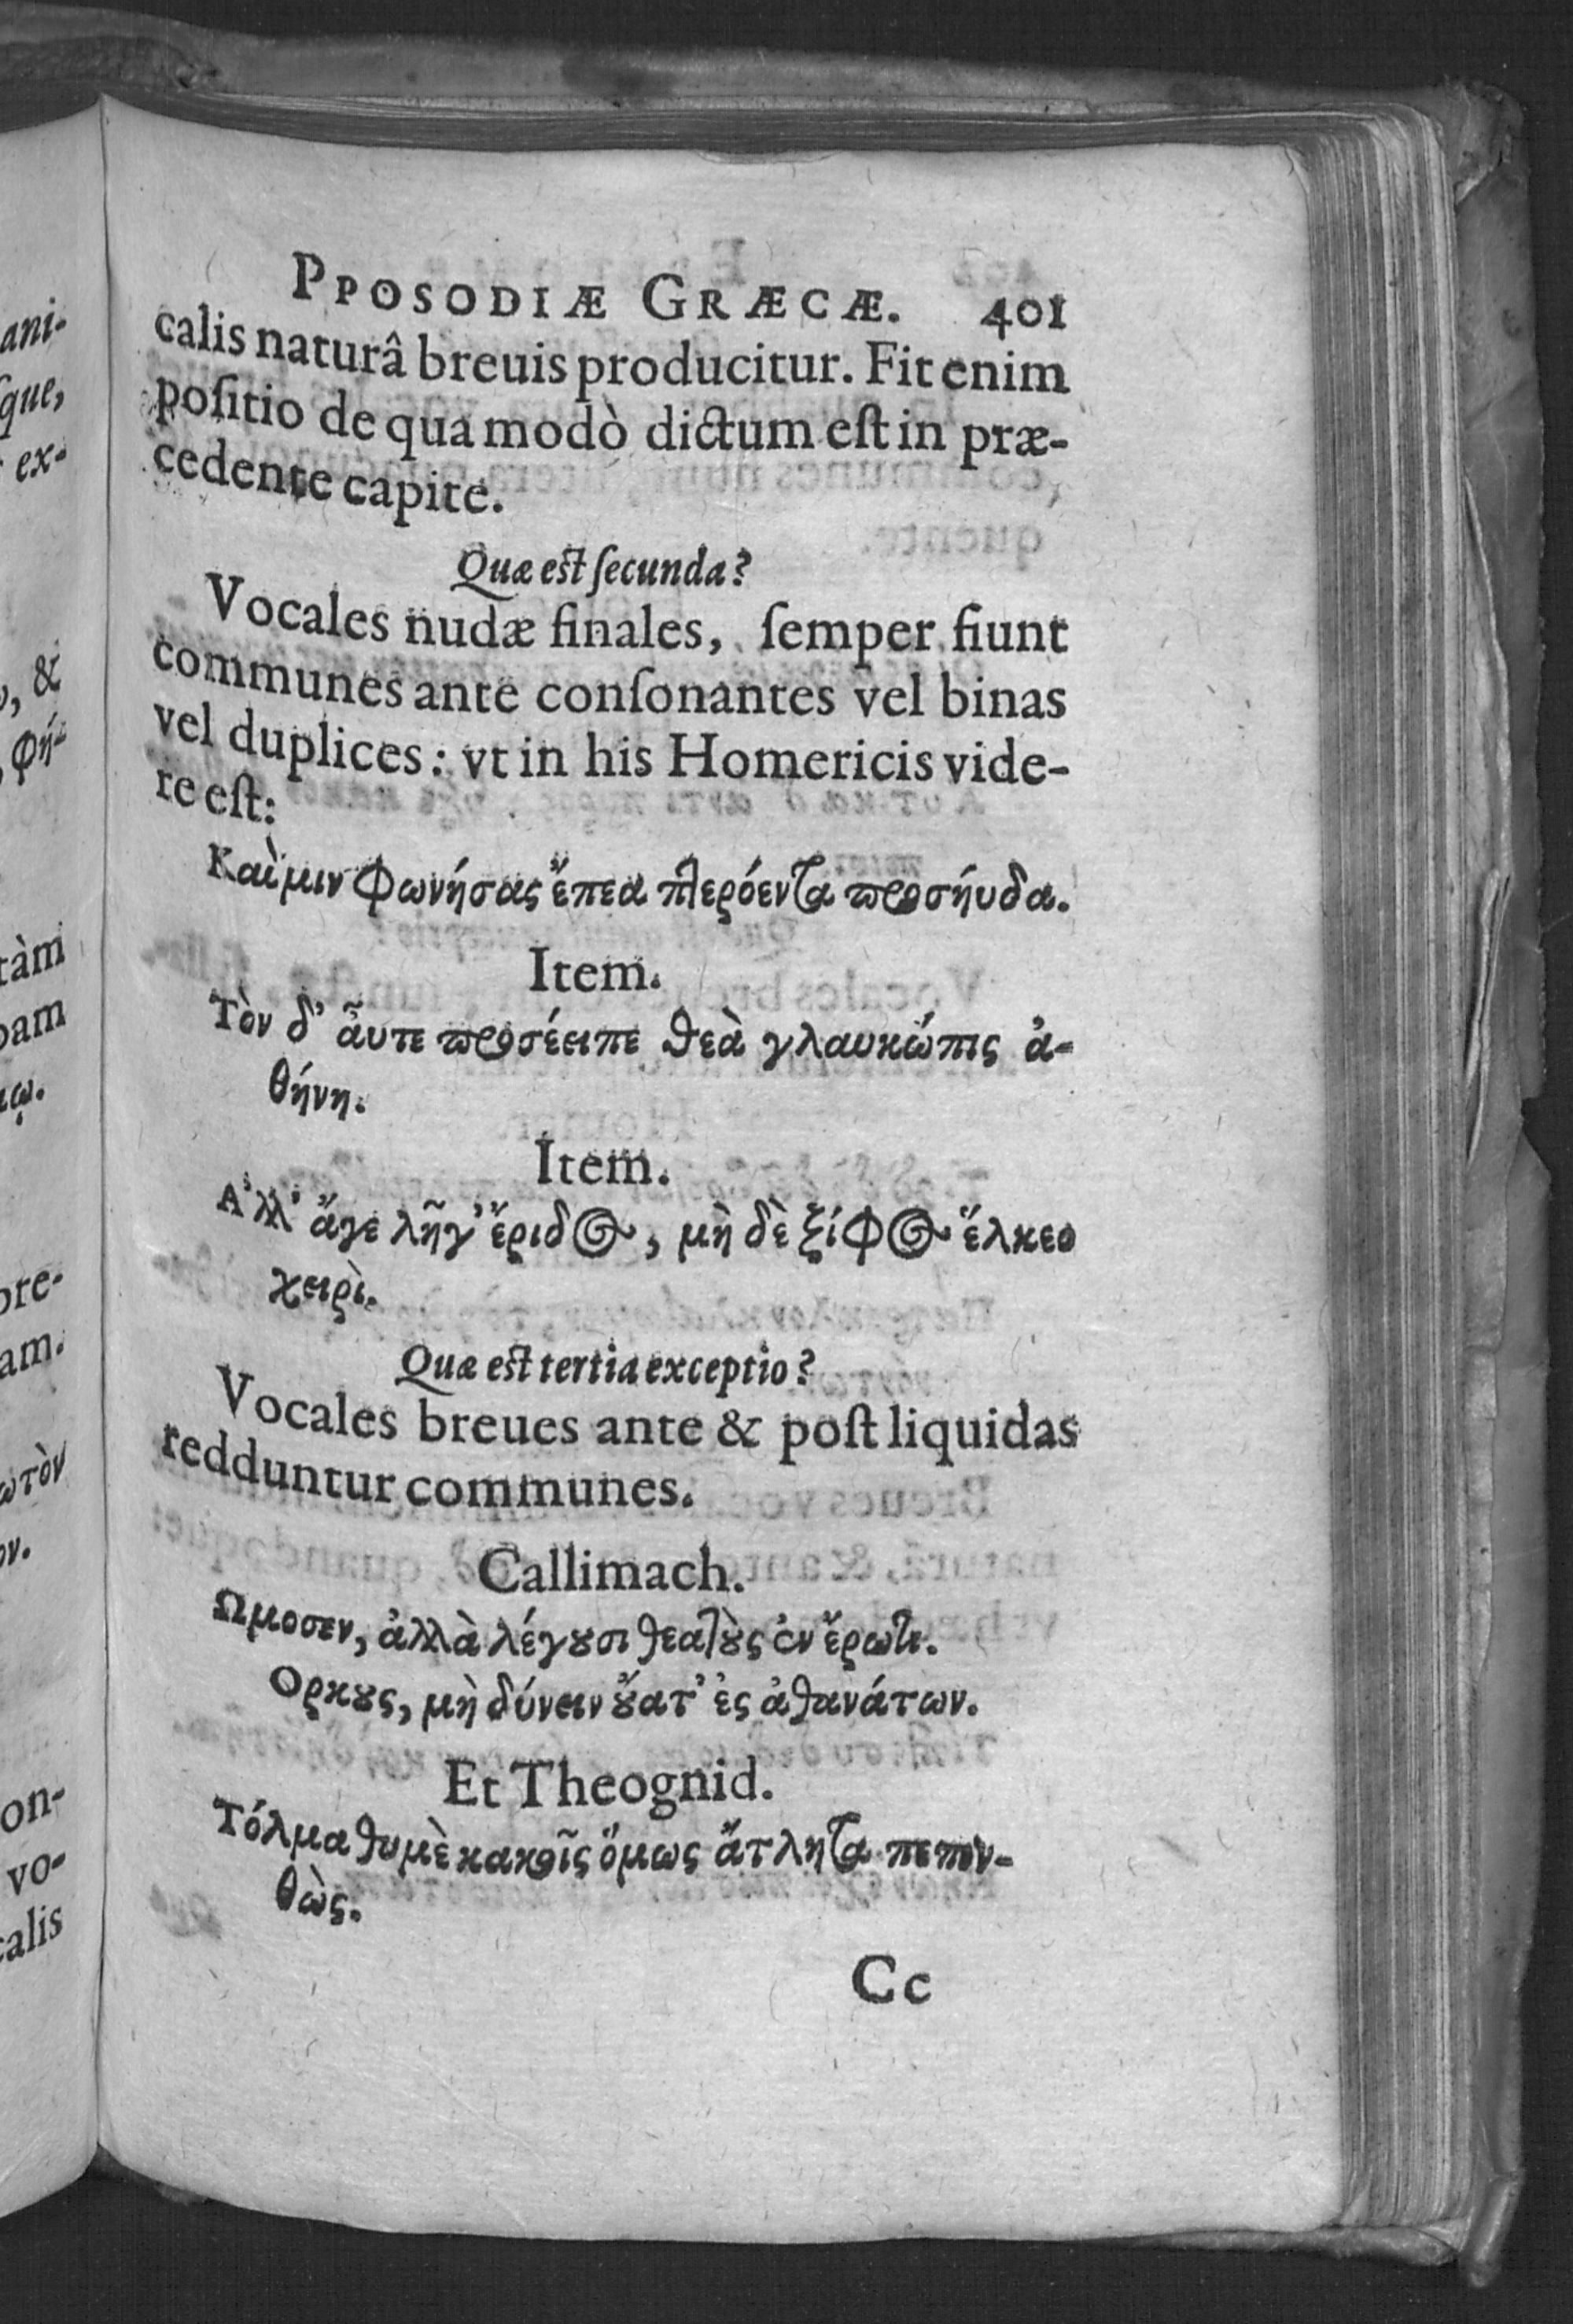 PPOSODIÆ GRÆCÆ. 401
calis naturâ breuis producitur. Fit enim
poſitio de qua modò dictum eſt in præ-
cedente capite.
Quæ eſt ſecunda?
Vocales nudæ finales, ſemper fiunt
communes ante conſonantes vel binas
vel duplices: vt in his Homericis vide-
re eſt:
Καὶ μιν φωνήσας ἔπεα πτερόεντα προσήυδα.
Item.
Τὸν δ' ἆυτε προσέειπε θεὰ γλαυκώπις ἀ-
θήνη.
Item.
Α'λλ' ἄγε λῆγ' ἔριδος, μὴ δὲ ξίφος ἕλκεο
χειρὶ.
Quæ eſt tertia exceptio?
Vocales breues ante & poſt liquidas
redduntur communes.
Callimach.
Ωμοσεν, ἀλλὰ λέγουσι θεατοὺς ἐν ἔρωτι.
Ορκους, μὴ δύνειν οὔατ' ἐς ἀθανάτων.
Et Theognid.
Τόλμα θυμὲ κακοῖς ὅμως ἄτλητα πεπον-
θὼς.
Cc
ani-
ſque,
ex-
, &
, φή-
tàm
pam
pre-
am.
ωτὸν
ον.
on-
vo-
calis